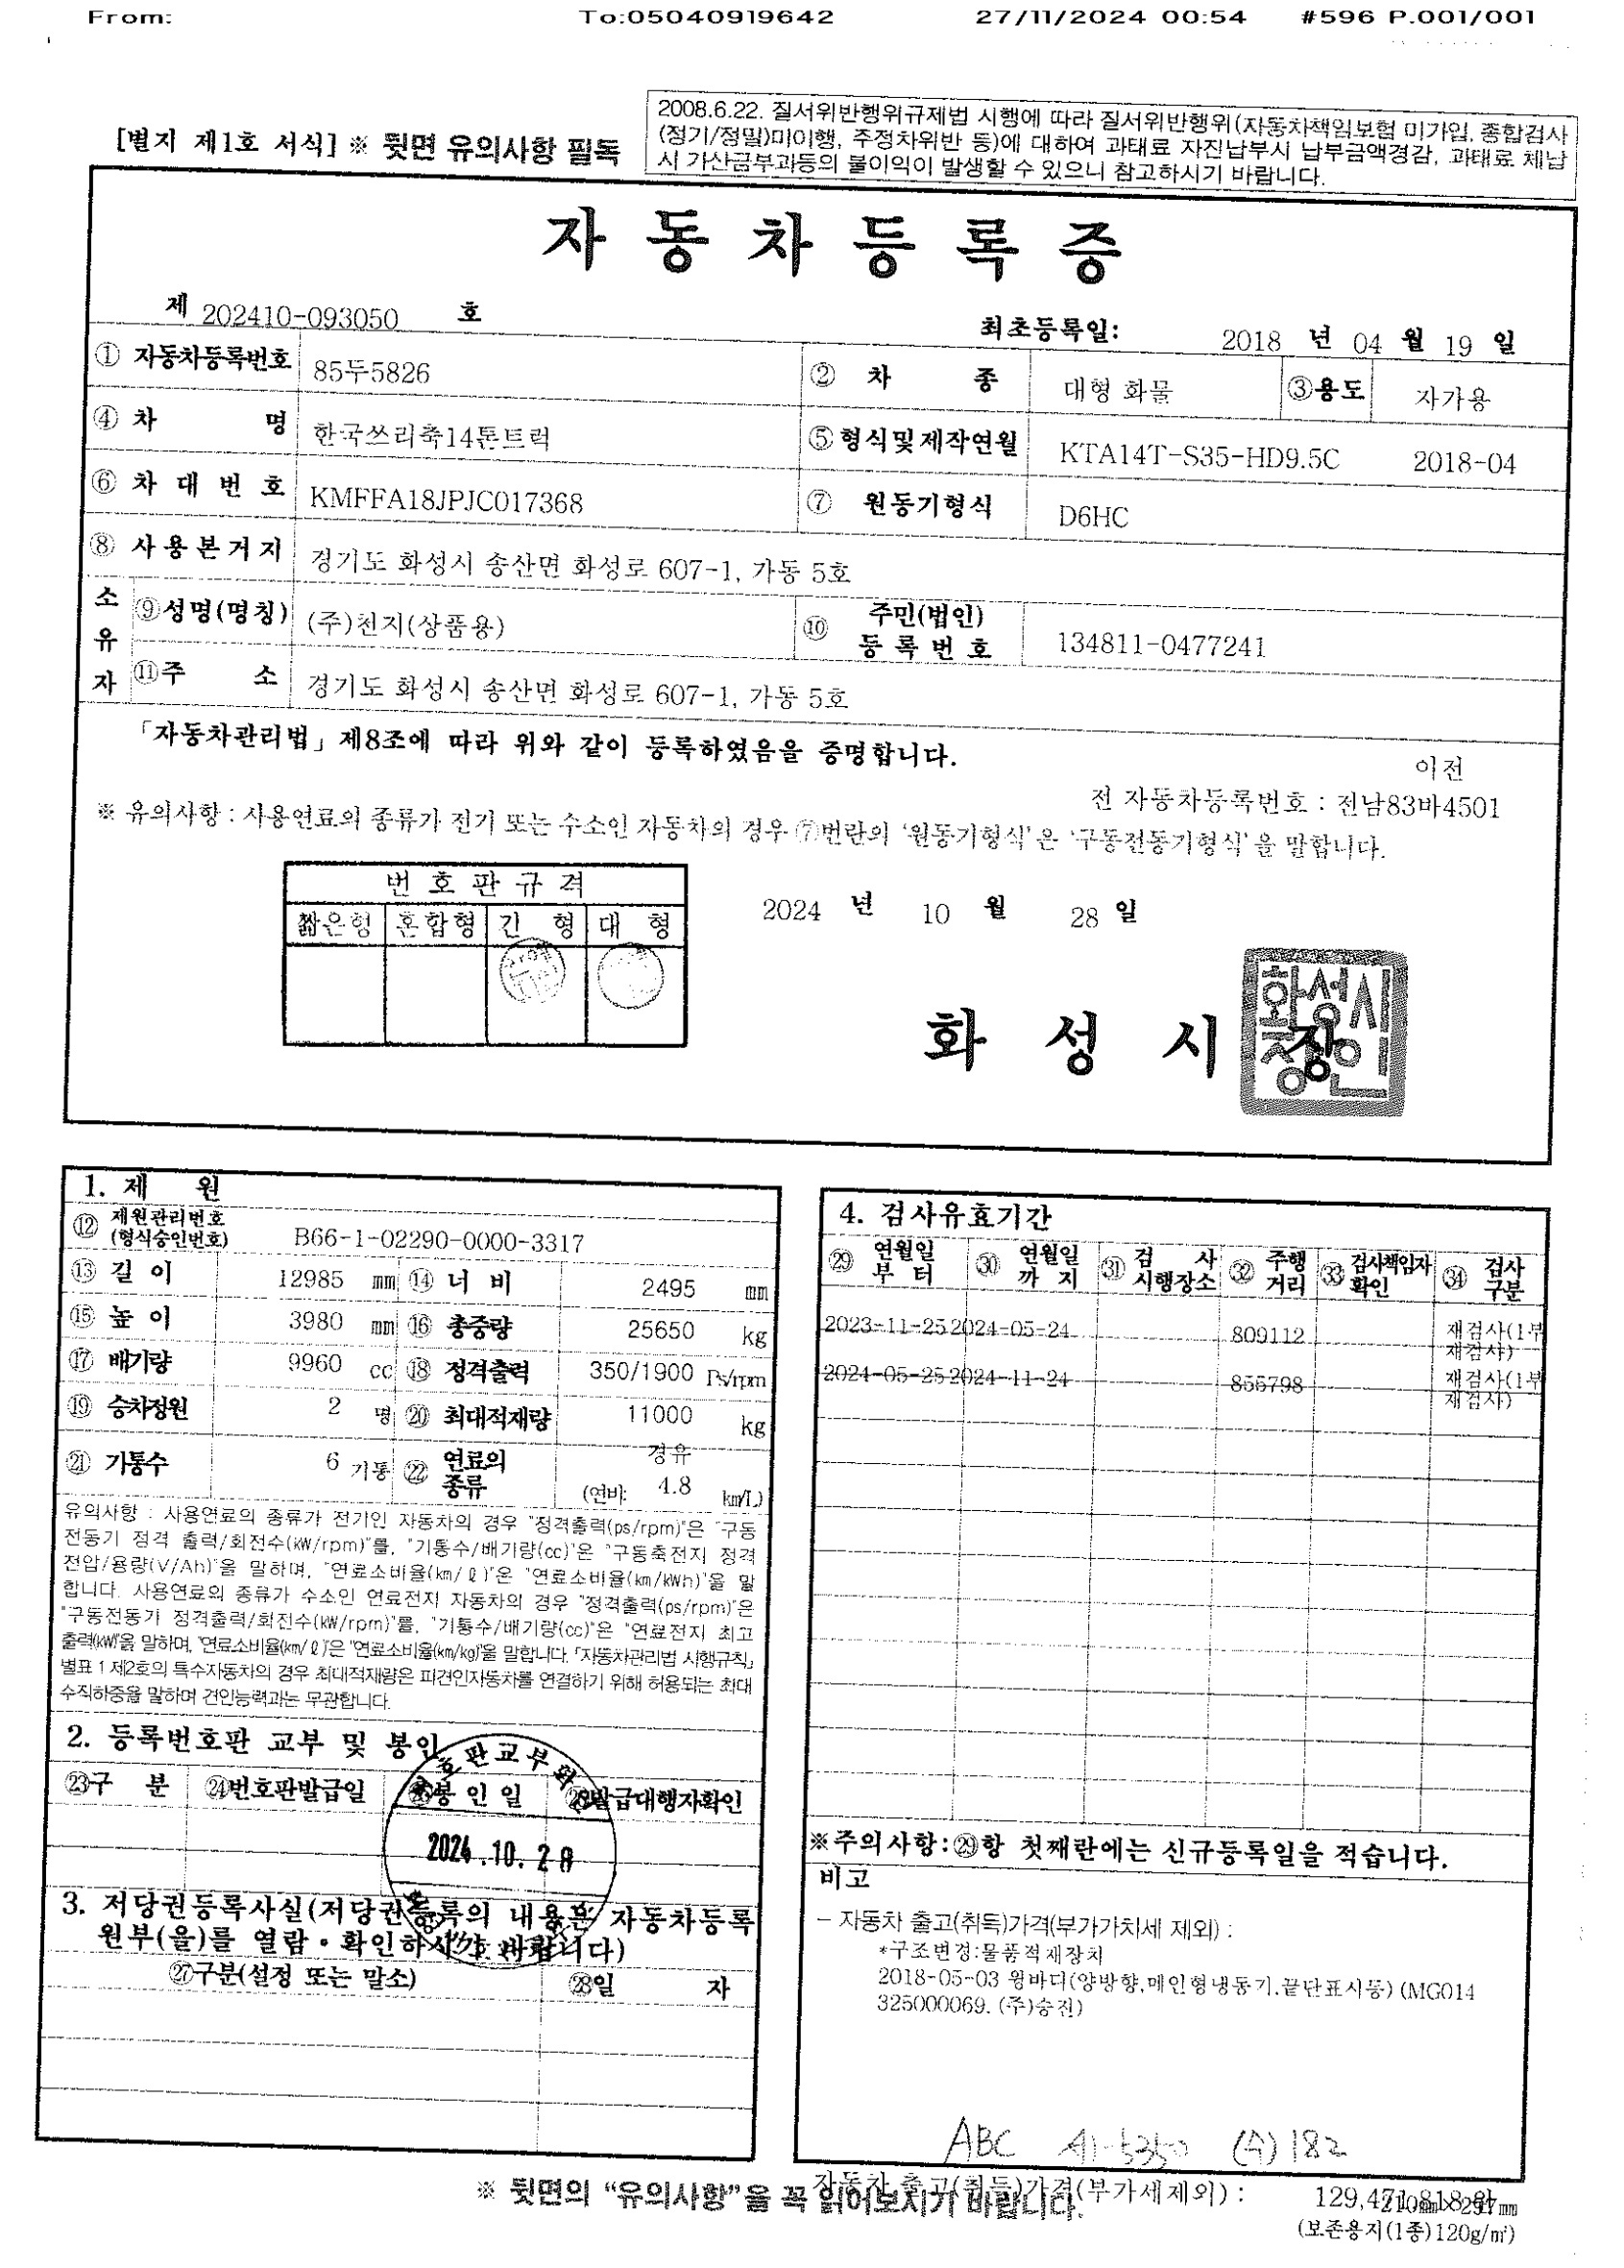 From: To:05040919642 27/11/2024 00:54 #596 P.001/001
[별지 제1호 서식] ※ 뒷면 유의사항 필독
2008.6.22. 질서위반행위규제법 시행에 따라 질서위반행위(자동차책임보험 미가입, 종합검사
(정기/정밀)미이행, 주정차위반 등)에 대하여 과태료 자진납부시 납부금액경감, 과태료 체납
시 가산금부과등의 불이익이 발생할 수 있으니 참고하시기 바랍니다.
자동차등록증
제 202410-093050 호
최초등록일: 2018 년 04 월 19 일
① 자동차등록번호 85두5826 ② 차 종 대형 화물 ③용도 자가용
④ 차 명 한국쓰리축14톤트럭 ⑤ 형식및제작연월 KTA14T-S35-HD9.5C 2018-04
⑥ 차대번호 KMFFA18JPJC017368 ⑦ 원동기형식 D6HC
⑧ 사용본거지 경기도 화성시 송산면 화성로 607-1, 가동 5호
소유자 ⑨성명(명칭) (주)천지(상품용) ⑩ 주민(법인)등록번호 134811-0477241
⑪주 소 경기도 화성시 송산면 화성로 607-1, 가동 5호
「자동차관리법」제8조에 따라 위와 같이 등록하였음을 증명합니다.
이전
전 자동차등록번호 : 전남83바4501
※ 유의사항 : 사용연료의 종류가 전기 또는 수소인 자동차의 경우 ⑦번란의 '원동기형식'은 '구동전동기형식'을 말합니다.
번호판규격
짧은형 혼합형 긴 형 대 형
2024 년 10 월 28 일
화성시장
화성시
장인
1. 제 원
⑫ 제원관리번호 (형식승인번호) B66-1-02290-0000-3317
⑬ 길 이 12985 mm ⑭ 너 비 2495 mm
⑮ 높 이 3980 mm ⑯ 총중량 25650 kg
⑰ 배기량 9960 cc ⑱ 정격출력 350/1900 Ps/rpm
⑲ 승차정원 2 명 ⑳ 최대적재량 11000 kg
㉑ 기통수 6 기통 ㉒ 연료의 종류 경유 (연비: 4.8 km/L)
유의사항 : 사용연료의 종류가 전기인 자동차의 경우 "정격출력(ps/rpm)"은 "구동
전동기 정격 출력/회전수(kW/rpm)"를, "기통수/배기량(cc)"은 "구동축전지 정격
전압/용량(V/Ah)"을 말하며, "연료소비율(km/ℓ)"은 "연료소비율(km/kWh)"을 말
합니다. 사용연료의 종류가 수소인 연료전지 자동차의 경우 "정격출력(ps/rpm)"은
"구동전동기 정격출력/회전수(kW/rpm)"를, "기통수/배기량(cc)"은 "연료전지 최고
출력(kW)"을 말하며, "연료소비율(km/ℓ)"은 "연료소비율(km/kg)"을 말합니다. 「자동차관리법 시행규칙」
별표 1 제2호의 특수자동차의 경우 최대적재량은 피견인자동차를 연결하기 위해 허용되는 최대
수직하중을 말하며 견인능력과는 무관합니다.
2. 등록번호판 교부 및 봉인
㉓구 분 ㉔번호판발급일 ㉕봉인일 ㉖발급대행자확인
호판교부
2024.10.28
3. 저당권등록사실(저당권등록의 내용은 자동차등록
원부(을)를 열람·확인하시기 바랍니다)
㉗구분(설정 또는 말소) ㉘일 자
4. 검사유효기간
㉙ 연월일부터 ㉚ 연월일까지 ㉛ 검사시행장소 ㉜ 주행거리 ㉝ 검사책임자확인 ㉞ 검사구분
2023-11-25 2024-05-24 809112 재검사(1부재검사)
2024-05-25 2024-11-24 855798 재검사(1부재검사)
※주의사항:㉙항 첫째란에는 신규등록일을 적습니다.
비고
- 자동차 출고(취득)가격(부가가치세 제외) :
*구조변경:물품적재장치
2018-05-03 윙바디(양방향,메인형냉동기,끝단표시등) (MG014
325000069. (주)승진)
ABC 세1-5350 (수) 182
※ 뒷면의 "유의사항"을 꼭 읽어보시기 바랍니다.
자동차 출고(취득)가격(부가세제외) : 129,471,818 원
210㎜×297㎜
(보존용지(1종)120g/㎡)